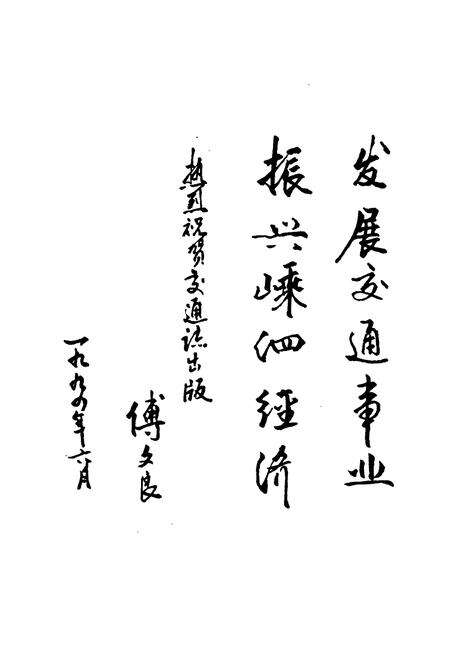 发展交通事业
振兴嵊泗经济
热烈祝贺交通志出版
傅文良
一九九四年六月